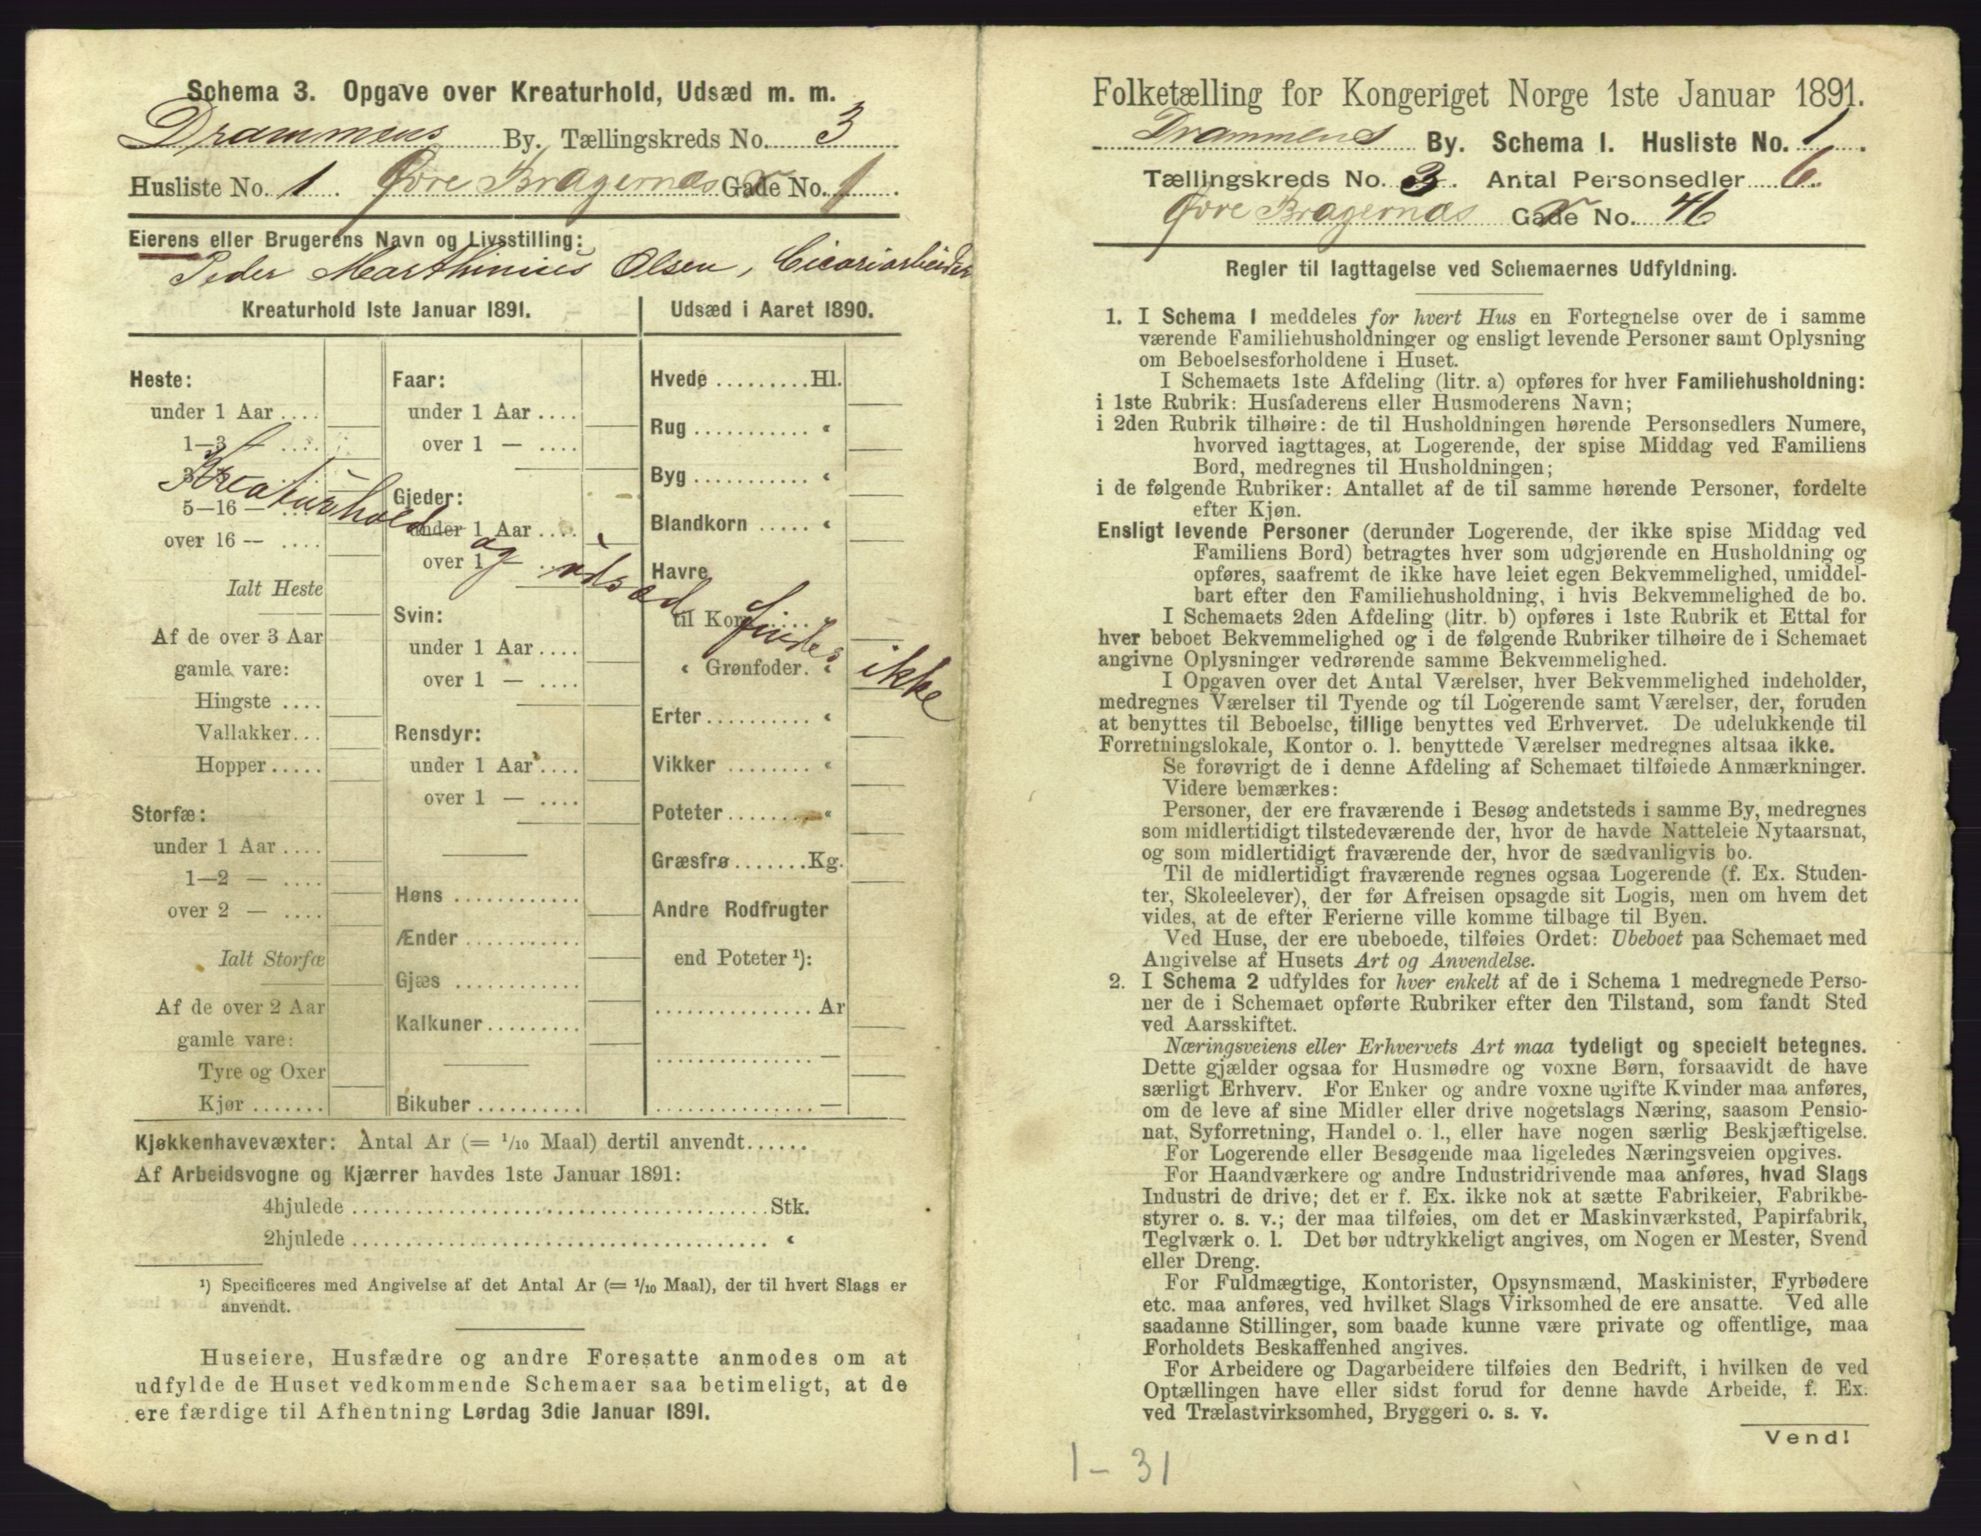 Schema 3. Opgave over Kreaturhold, Udsæd m. m.
Drammens By. Tællingskreds No. 3
Husliste No. 1. Øvre Bragernæs Gade No. 1.
Eierens eller Brugerens Navn og Livsstilling:
Peder Marthinius Olsen, Cicoriarbeider
Kreaturhold 1ste Januar 1891.
Heste:
under 1 Aar ....
1—3 — ....
3—5 — ....
5—16 — ....
over 16 — ....
Ialt Heste
Af de over 3 Aar
gamle vare:
Hingste ....
Vallakker...
Hopper.....
Storfæ:
under 1 Aar ....
1—2 — ....
over 2 — ....
Ialt Storfæ
Af de over 2 Aar
gamle vare:
Tyre og Oxer
Kjør .......
Faar:
under 1 Aar ....
over 1 — ....
Gjeder:
under 1 Aar ....
over 1 — ....
Svin:
under 1 Aar ....
over 1 — ....
Rensdyr:
under 1 Aar ....
over 1 — ....
Høns ............
Ænder ...........
Gjæs ............
Kalkuner.........
Bikuber..........
Udsæd i Aaret 1890.
Hvede .........Hl.
Rug ........... «
Byg ........... «
Blandkorn ..... «
Havre
til Korn...... «
« Grønfoder. «
Erter.......... «
Vikker ........ «
Poteter........ «
Græsfrø.......Kg.
Andre Rodfrugter
end Poteter ¹):
............... Ar
............... —
............... —
Kreaturhold og udsæd findes ikke
Kjøkkenhavevæxter: Antal Ar (= 1/10 Maal) dertil anvendt......
Af Arbeidsvogne og Kjærrer havdes 1ste Januar 1891:
4hjulede .......................................Stk.
2hjulede ....................................... «
¹) Specificeres med Angivelse af det Antal Ar (= 1/10 Maal), der til hvert Slags er
anvendt.
Huseiere, Husfædre og andre Foresatte anmodes om at
udfylde de Huset vedkommende Schemaer saa betimeligt, at de
ere færdige til Afhentning Lørdag 3die Januar 1891.
Folketælling for Kongeriget Norge 1ste Januar 1891.
Drammens By. Schema 1. Husliste No. 1.
Tællingskreds No. 3. Antal Personsedler 6.
Øvre Bragernæs Gade No. 46
Regler til Iagttagelse ved Schemaernes Udfyldning.
1. I Schema 1 meddeles for hvert Hus en Fortegnelse over de i samme
værende Familiehusholdninger og ensligt levende Personer samt Oplysning
om Beboelsesforholdene i Huset.
I Schemaets 1ste Afdeling (litr. a) opføres for hver Familiehusholdning:
i 1ste Rubrik: Husfaderens eller Husmoderens Navn;
i 2den Rubrik tilhøire: de til Husholdningen hørende Personsedlers Numere,
hvorved iagttages, at Logerende, der spise Middag ved Familiens
Bord, medregnes til Husholdningen;
i de følgende Rubriker: Antallet af de til samme hørende Personer, fordelte
efter Kjøn.
Ensligt levende Personer (derunder Logerende, der ikke spise Middag ved
Familiens Bord) betragtes hver som udgjørende en Husholdning og
opføres, saafremt de ikke have leiet egen Bekvemmelighed, umiddel-
bart efter den Familiehusholdning, i hvis Bekvemmelighed de bo.
I Schemaets 2den Afdeling (litr. b) opføres i 1ste Rubrik et Ettal for
hver beboet Bekvemmelighed og i de følgende Rubriker tilhøire de i Schemaet
angivne Oplysninger vedrørende samme Bekvemmelighed.
I Opgaven over det Antal Værelser, hver Bekvemmelighed indeholder,
medregnes Værelser til Tyende og til Logerende samt Værelser, der, foruden
at benyttes til Beboelse, tillige benyttes ved Erhvervet. De udelukkende til
Forretningslokale, Kontor o. l. benyttede Værelser medregnes altsaa ikke.
Se forøvrigt de i denne Afdeling af Schemaet tilføiede Anmærkninger.
Videre bemærkes:
Personer, der ere fraværende i Besøg andetsteds i samme By, medregnes
som midlertidigt tilstedeværende der, hvor de havde Natteleie Nytaarsnat,
og som midlertidigt fraværende der, hvor de sædvanligvis bo.
Til de midlertidigt fraværende regnes ogsaa Logerende (f. Ex. Studen-
ter, Skoleelever), der før Afreisen opsagde sit Logis, men om hvem det
vides, at de efter Ferierne ville komme tilbage til Byen.
Ved Huse, der ere ubeboede, tilføies Ordet: Ubeboet paa Schemaet med
Angivelse af Husets Art og Anvendelse.
2. I Schema 2 udfyldes for hver enkelt af de i Schema 1 medregnede Perso-
ner de i Schemaet opførte Rubriker efter den Tilstand, som fandt Sted
ved Aarsskiftet.
Næringsveiens eller Erhvervets Art maa tydeligt og specielt betegnes.
Dette gjælder ogsaa for Husmødre og voxne Børn, forsaavidt de have
særligt Erhverv. For Enker og andre voxne ugifte Kvinder maa anføres,
om de leve af sine Midler eller drive nogetslags Næring, saasom Pensio-
nat, Syforretning, Handel o. l., eller have nogen særlig Beskjæftigelse.
For Logerende eller Besøgende maa ligeledes Næringsveien opgives.
For Haandværkere og andre Industridrivende maa anføres, hvad Slags
Industri de drive; det er f. Ex. ikke nok at sætte Fabrikeier, Fabrikbe-
styrer o. s. v.; der maa tilføies, om det er Maskinværksted, Papirfabrik,
Teglværk o. l. Det bør udtrykkeligt angives, om Nogen er Mester, Svend
eller Dreng.
For Fuldmægtige, Kontorister, Opsynsmænd, Maskinister, Fyrbødere
etc. maa anføres, ved hvilket Slags Virksomhed de ere ansatte. Ved alle
saadanne Stillinger, som baade kunne være private og offentlige, maa
Forholdets Beskaffenhed angives.
For Arbeidere og Dagarbeidere tilføies den Bedrift, i hvilken de ved
Optællingen have eller sidst forud for denne havde Arbeide, f. Ex.
ved Trælastvirksomhed, Bryggeri o. s. v.
Vend!
1-31